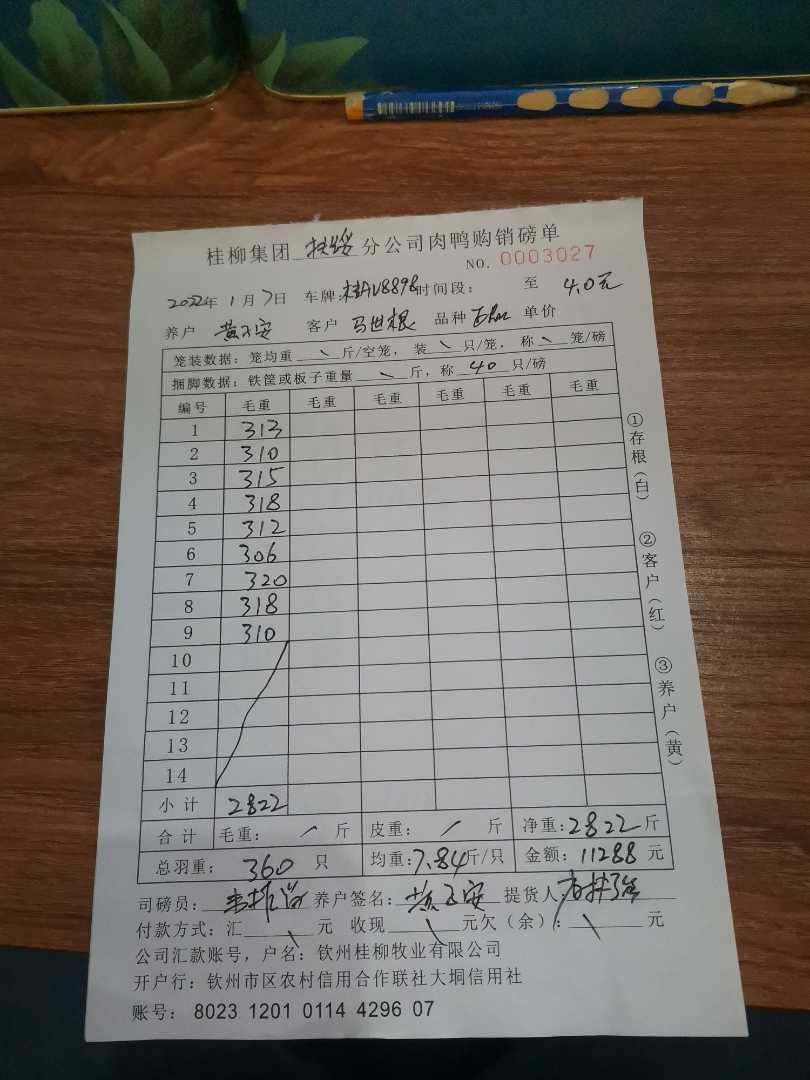 桂柳集团 扶绥 分公司肉鸭购销磅单
NO. 0003027
2022年 1 月 7 日 车牌: 桂AV8898 时间段: 至 4.0元
养户 黄玉安 客户 马世根 品种 单价
笼装数据: 笼均重 \ 斤/空笼, 装 \ 只/笼, 称 \ 笼/磅
捆脚数据: 铁筐或板子重量 \ 斤, 称 40 只/磅
编号 毛重 毛重 毛重 毛重 毛重 毛重
1 313
2 310
3 315
4 318
5 312
6 306
7 320
8 318
9 310
10
11
12
13
14
小计 2822
合计 毛重: / 斤 皮重: / 斤 净重: 2822 斤
总羽重: 360 只 均重: 7.84 斤/只 金额: 11288 元
司磅员: 养户签名: 黄玉安 提货人
付款方式: 汇 \ 元 收现 \ 元欠(余): \ 元
公司汇款账号, 户名: 钦州桂柳牧业有限公司
开户行: 钦州市区农村信用合作联社大垌信用社
账号: 8023 1201 0114 4296 07
①存根(白)
②客户(红)
③养户(黄)